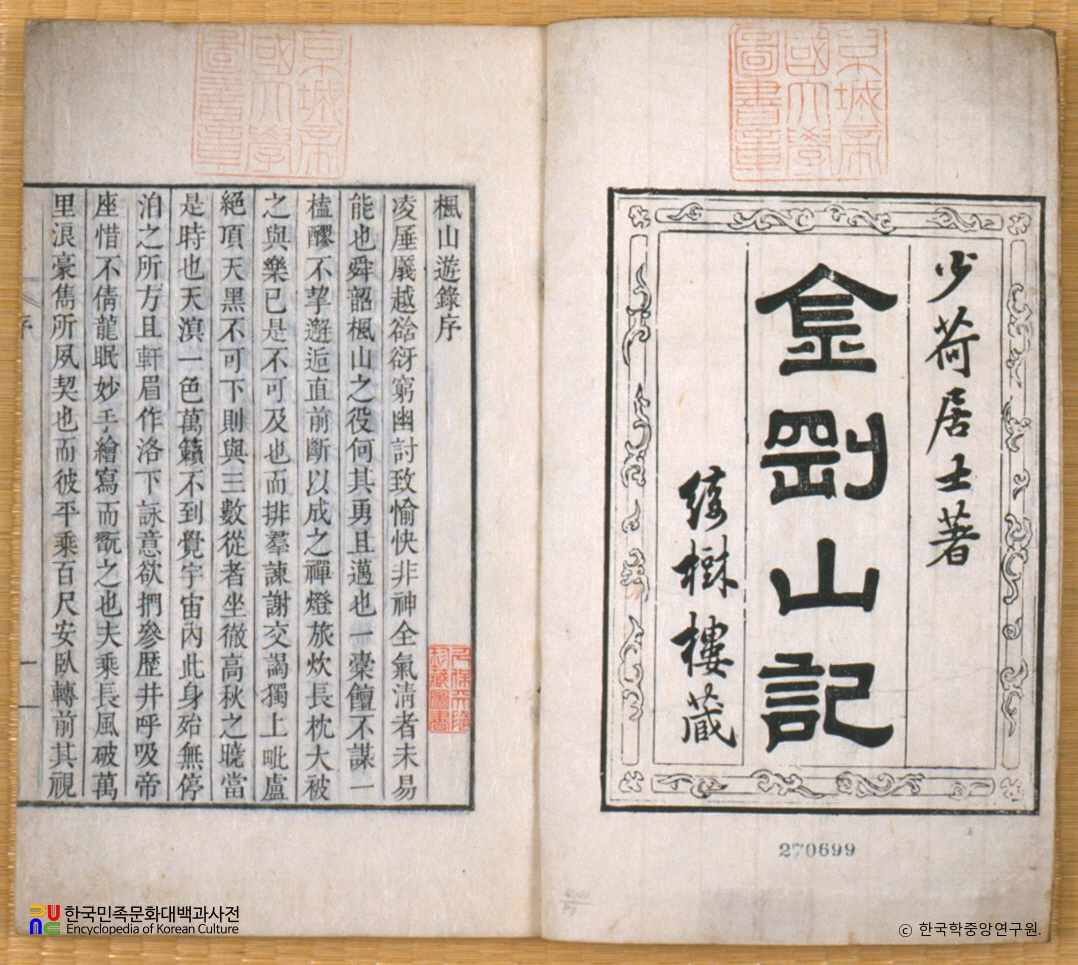 京城帝
國大學
圖書章
少荷居士著
金剛山記
綉樾樓藏
270699
京城帝
國大學
圖書章
楓山遊錄序
凌厜㕒越谽谺窮幽討致愉快非神全氣淸者未易
能也舜韶楓山之役何其勇且邁也一槖饘不謀一
榼醪不挈邂逅直前斷以成之禪燈旅炊長枕大被
之與樂已是不可及也而排羣諫謝交謁獨上毗盧
絕頂天黑不可下則與三數從者坐徹高秋之曉當
是時也天溟一色萬籟不到覺宇宙內此身殆無停
泊之所方且軒眉作洛下詠意欲捫參歷井呼吸帝
座惜不倩龍眠妙手繪寫而翫之也夫乘長風破萬
里浪豪雋所夙契也而彼平乘百尺安臥轉前其視
序
一
한국민족문화대백과사전
Encyclopedia of Korean Culture
© 한국학중앙연구원.